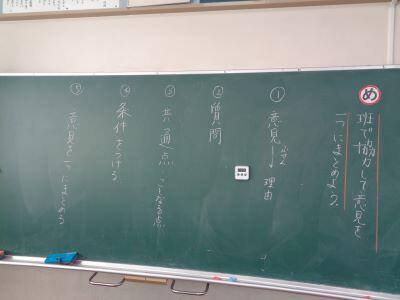 め
班で協力して意見を
一つにまとめよう
① 意見→理由
② 質問
③ 共通点 ことなる点
④ 条件をつける
⑤ 意見を一つにまとめる